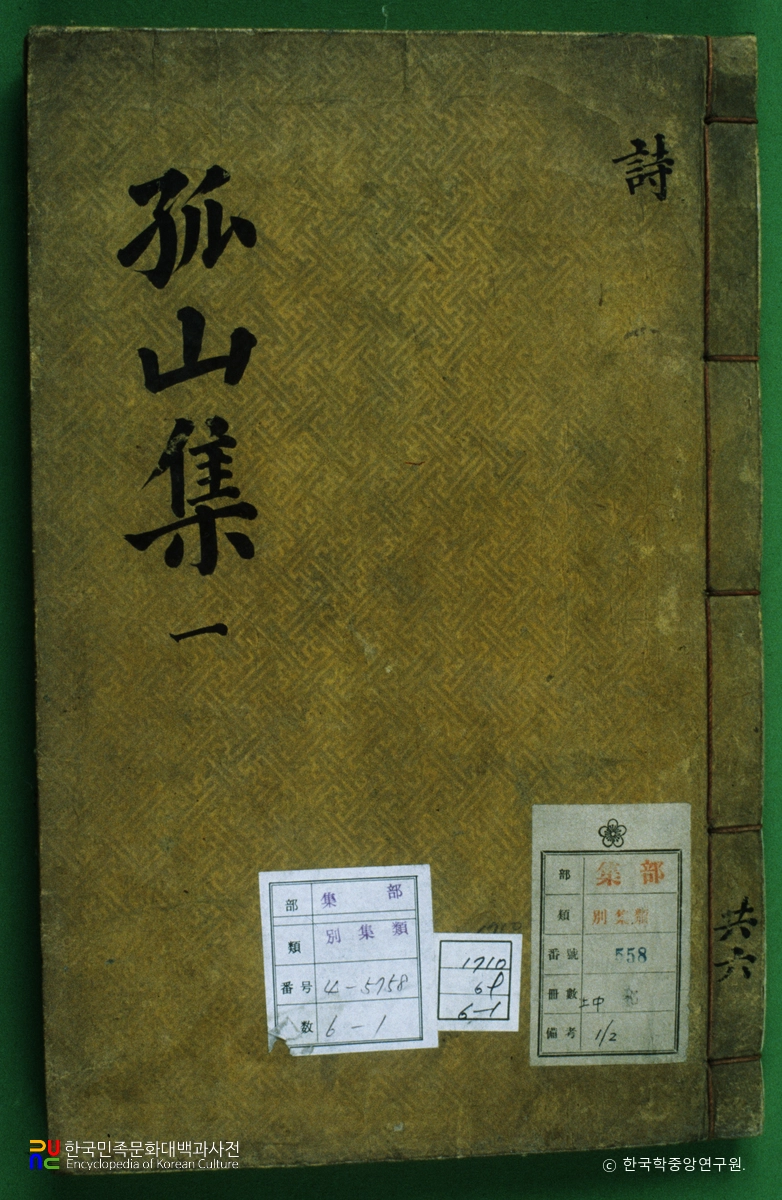 孤山集 一
詩
共六
部 集部
類 別集類
番号 4-5758
数 6-1
1710
6-1
部 集部
類 別集類
番號 558
冊數
備考 1/2
한국민족문화대백과사전
Encyclopedia of Korean Culture
ⓒ 한국학중앙연구원.